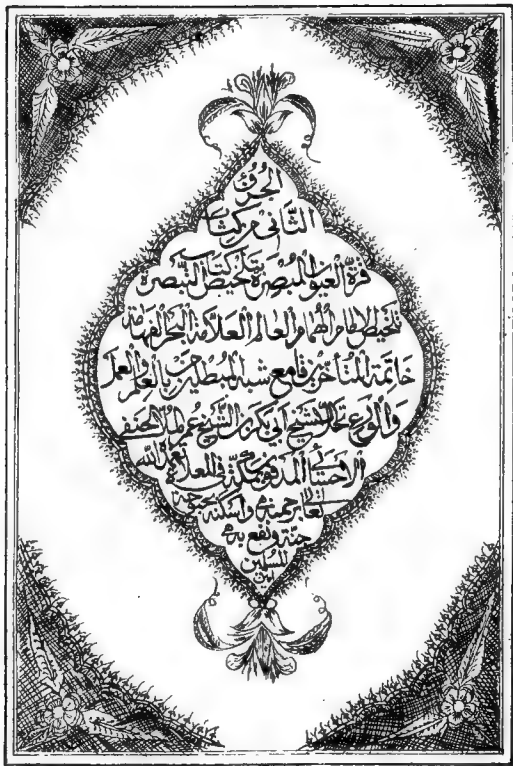 الجزء
الثاني من كتاب
قرة العيون المبصرة بتلخيص كتاب التبصرة
تلخيص الامام الهمام والعالم العلامة البحر الفهامة
خاتمة المتأخرين قامع شبه المبطلين بالعلم والعمل
والورع الشيخ أبي بكر بن الشيخ عمر الملا الحنفي
الاحسائي المدفون بمكة في المعلاة تغمده الله
تعالى برحمته واسكنه بحبوحة
جنته ونفع به
المسلمين
آمين